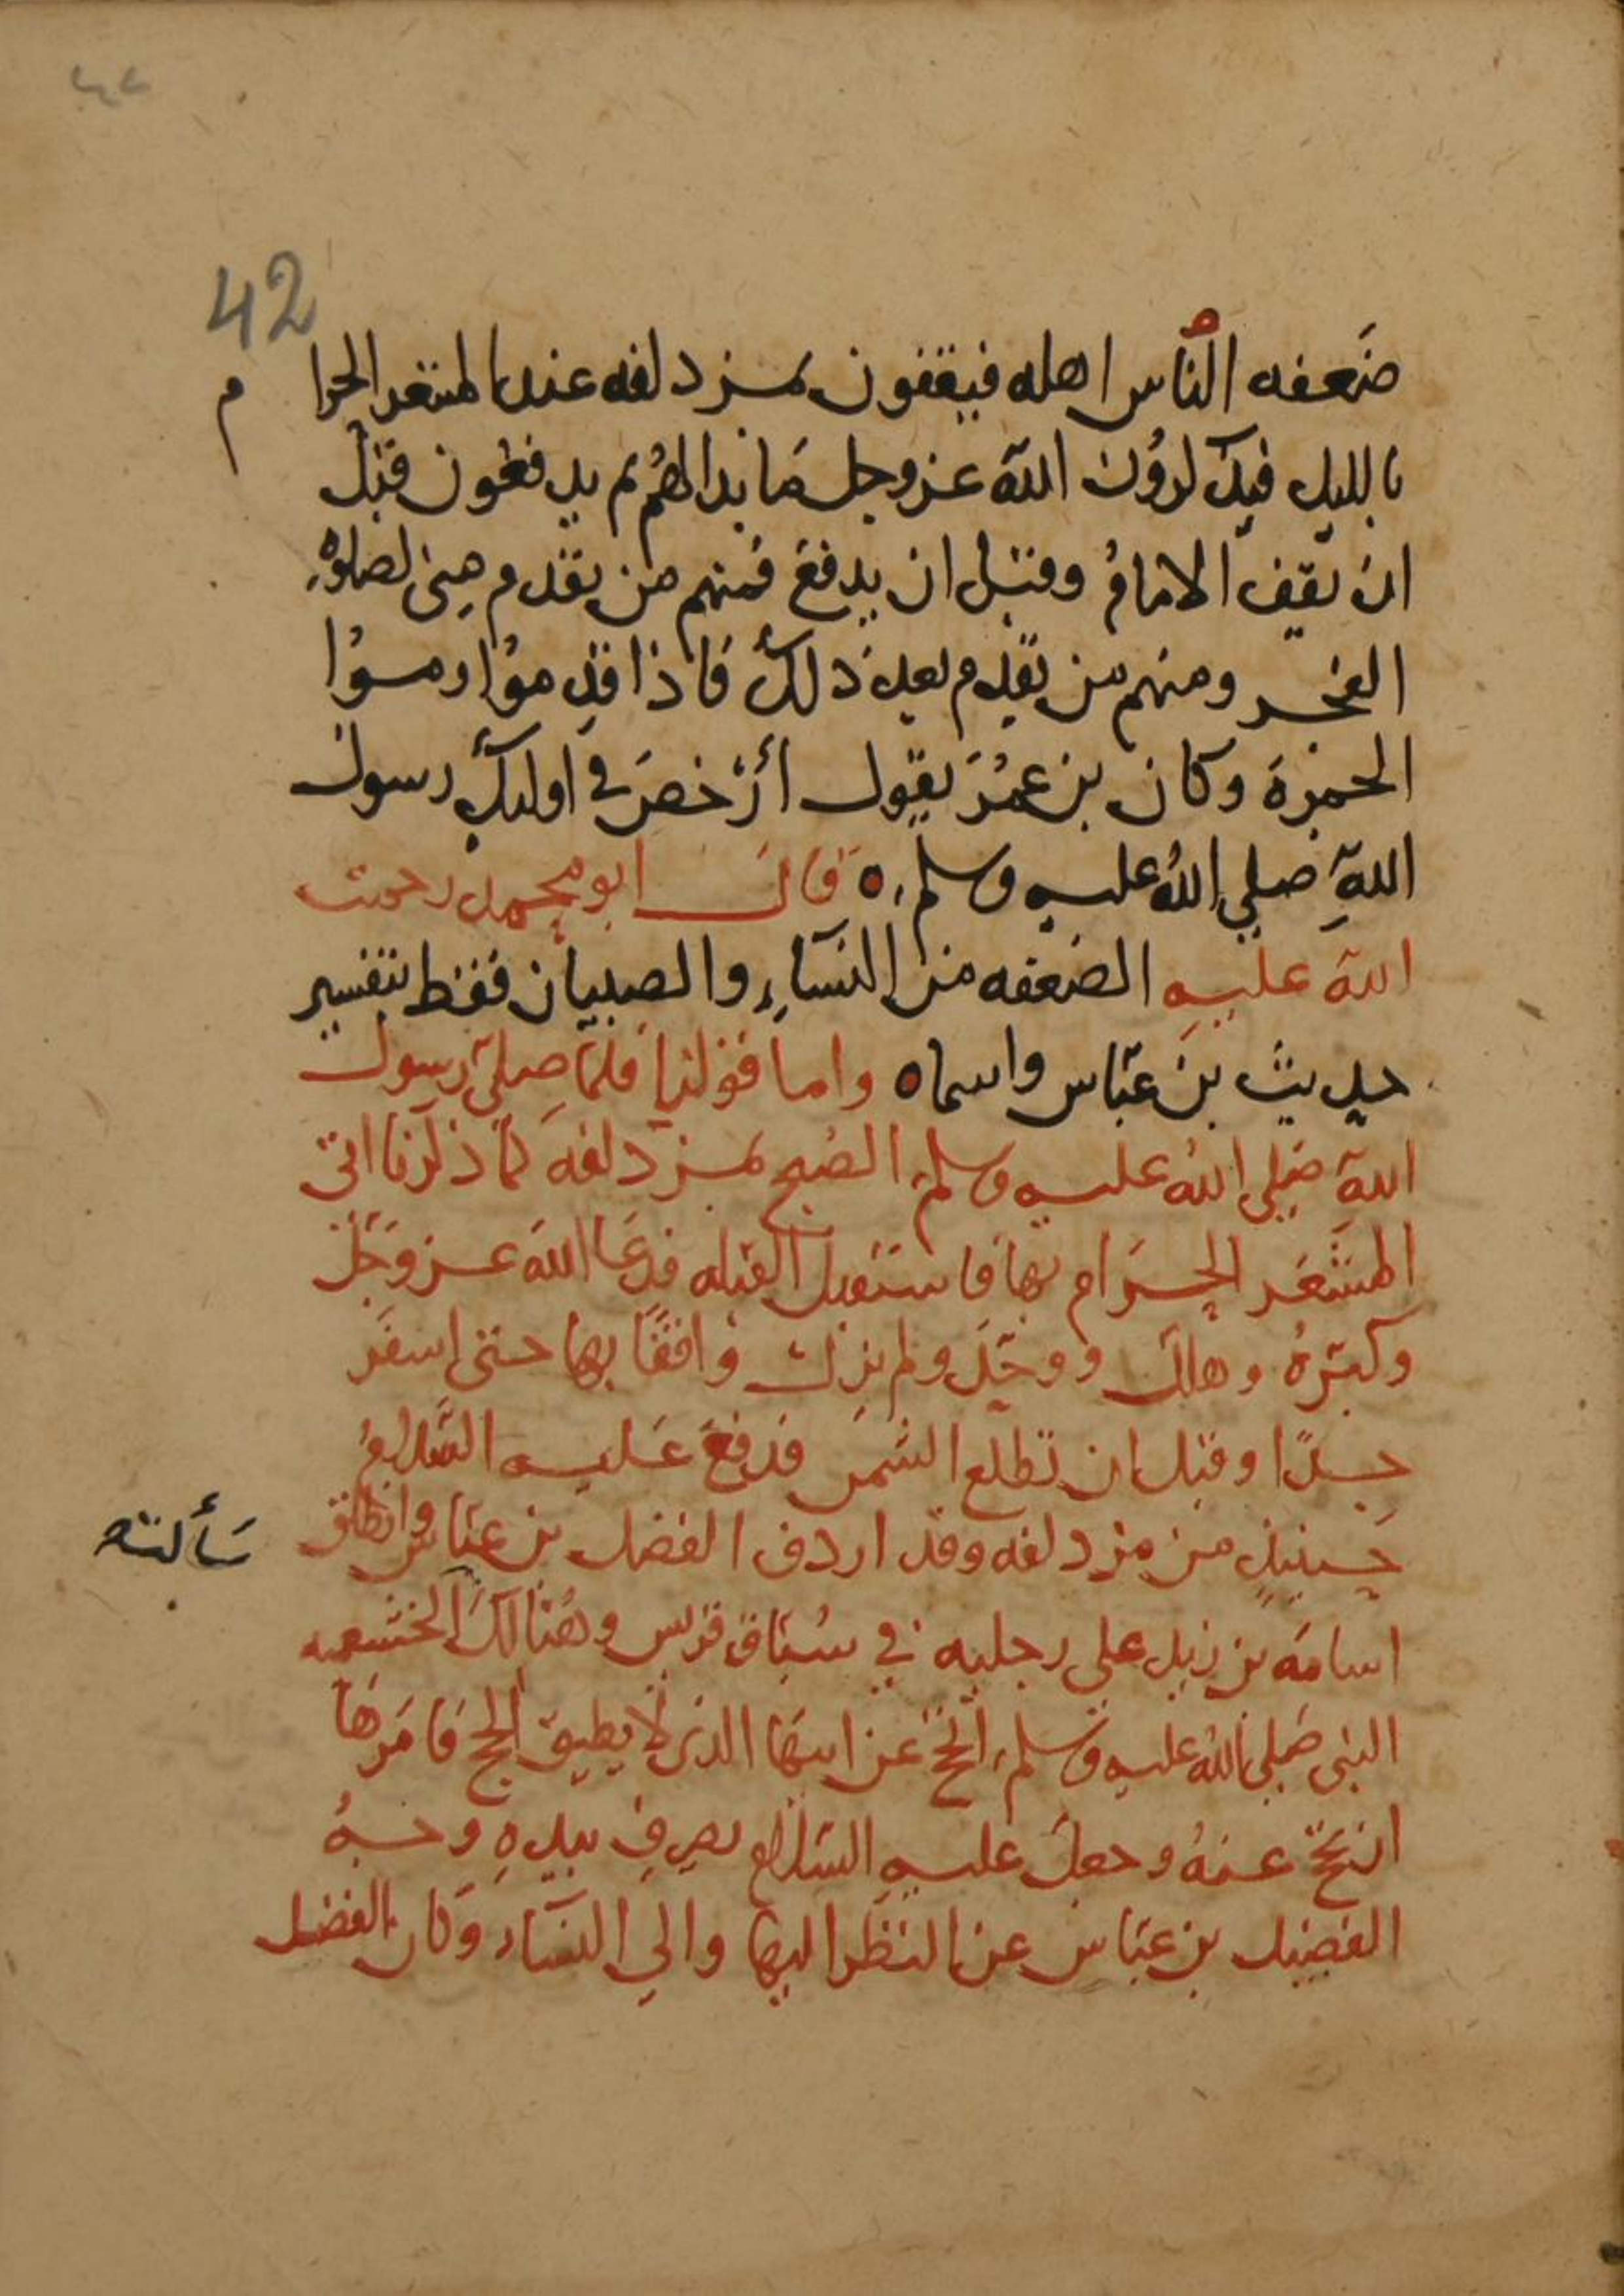 ٤٢
42
ضَعفه النّاس اهله فيقفون بمزدلفه عند المشعر الحرا
م
بالليل فيذكرون اللّه عز وجل مَا بدا لهُم ثم يدفعون قبل
ان يقف الامامُ وقبل ان يدفعَ فمنهم من يقدم منى لصلوةِ
الفجر ومنهم من يقدم بعد ذلك فاذا قدموُا رموُا
الجمرة وكان بن عُمَر يقول أرْخصَ في اوليك رسول
اللّهِ صلي اللّه عليه وسلم ه قال ابو محمد رحمت
اللّه عليهِ الضعفه من النسَاءِ والصبيان فقط بتفسير
حديث بن عبّاس واسماه واما قولنا فلمّا صلي رسول
اللّهِ صَلي اللّهُ عليه وسلم الصُبح بمزدلفه كما ذكرنا اتى
المشعَر الحَرَام بها فاستقبل القبله فدعَا اللّهَ عز وَجَل
وكبّرهُ وهلل ووحّدَ ولم يزل واقفًا بها حتى اسفَر
جدًا وقبل ان تطلع الشمس فدفعَ عَليه السَّلامُ
حينيذٍ من مزدلفه وقد اردف الفضل بن عبّاس وانطلق
اسامَه بن زيد على رجليه في سُبّاق قريس وهُنالكَ الخثعميه
سَألته
النبى صَلي اللّهُ عليه وسلم الحجّ عن ابيهَا الذى لا يطيق الحج فامَرهَا
ان تحجّ عنهُ وجعل عليهِ السّلام يصرف بيدهِ وجهُ
الفضل بن عبّاس عن النظر اليها والي النسَاءِ وَكان الفضل